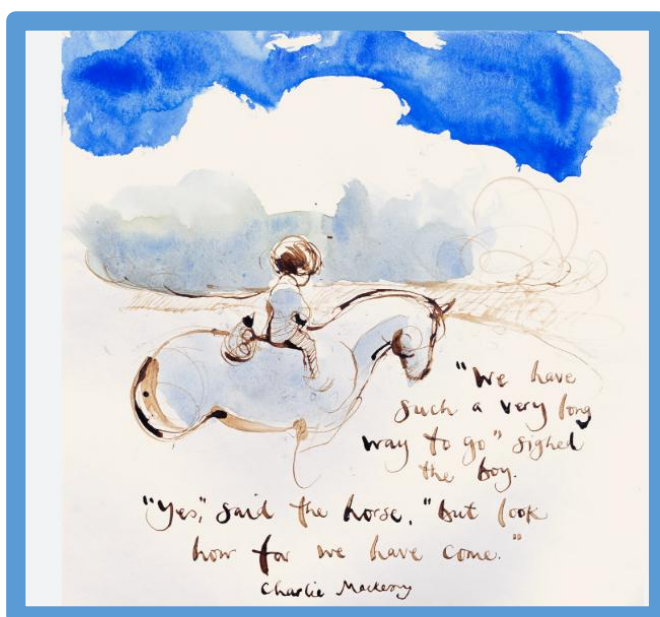 "We have
such a very long
way to go" sighed
the boy.
"Yes," said the horse, "but look
how far we have come."
Charlie Mackesy